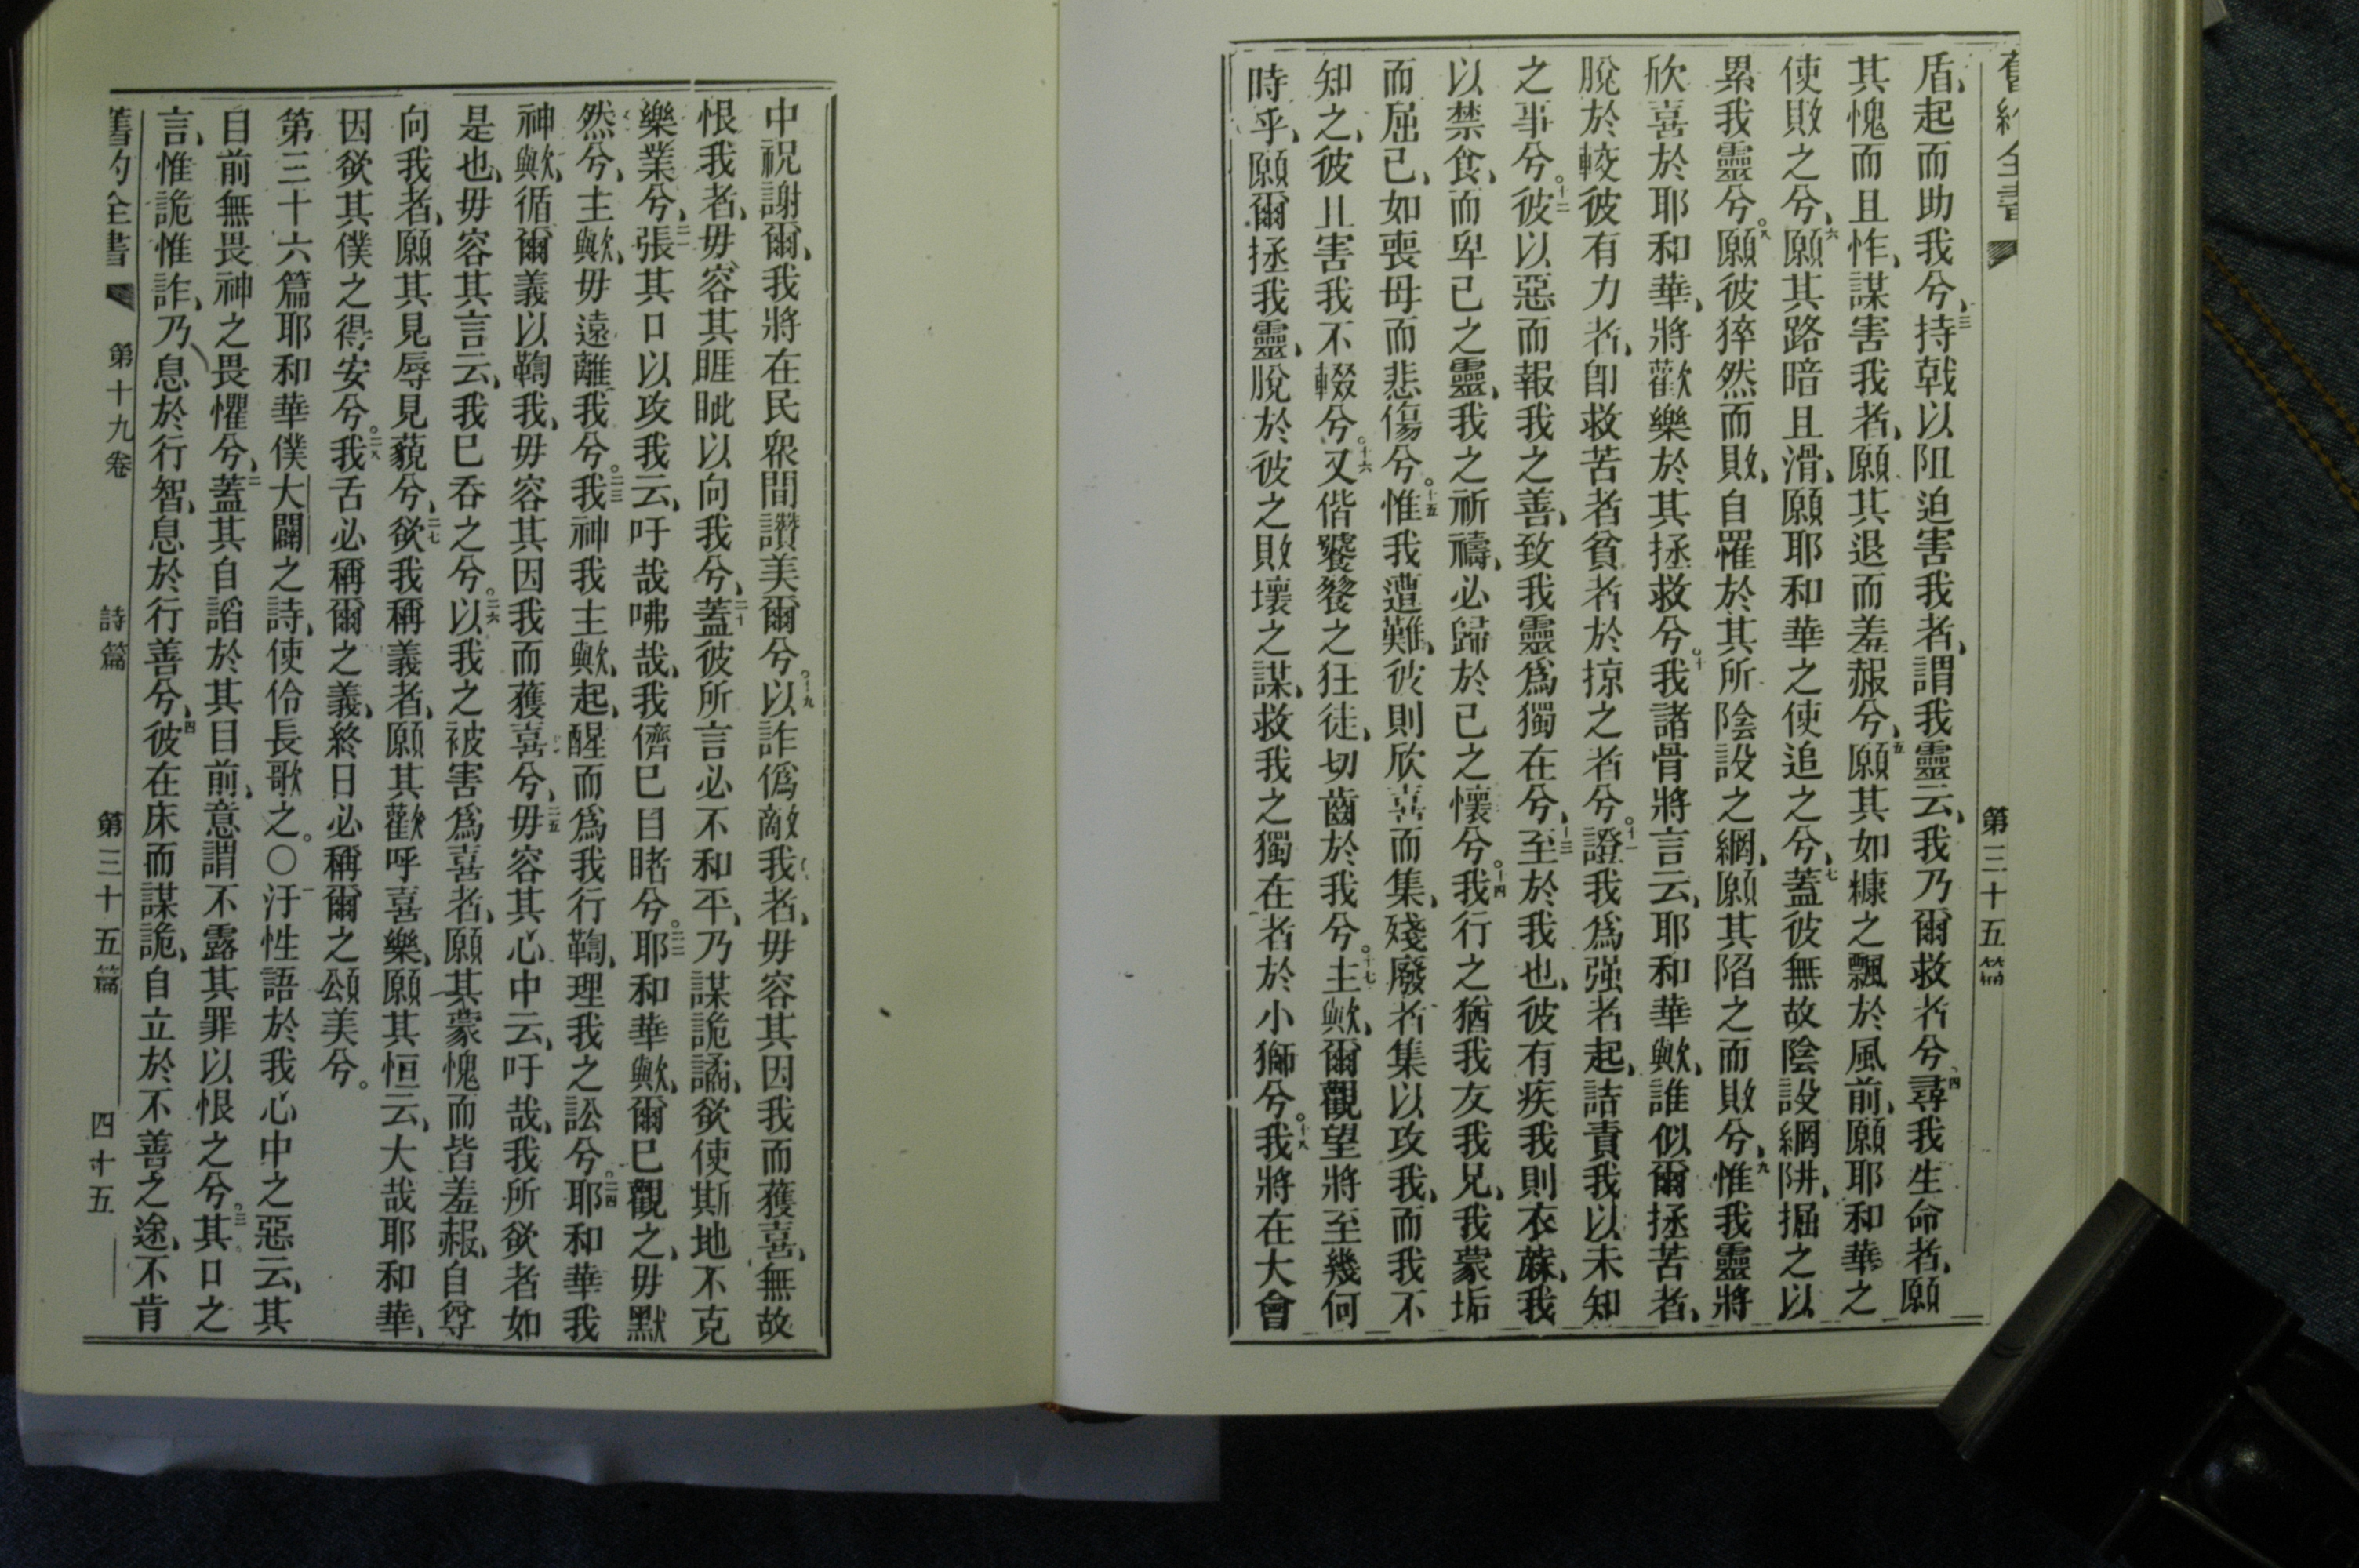 舊約全書 第三十五篇
盾、起而助我兮、三持戟以阻迫害我者、謂我靈云、我乃爾救者兮、四尋我生命者、願
其愧而且怍、謀害我者、願其退而羞赧兮、五願其如糠之飄於風前、願耶和華之
使敗之兮、六願其路暗且滑、願耶和華之使追之兮、七蓋彼無故陰設網阱、掘之以
累我靈兮。八願彼猝然而敗、自罹於其所陰設之網、願其陷之而敗兮、九惟我靈將
欣喜於耶和華、將歡樂於其拯救兮。十我諸骨將言云、耶和華歟、誰似爾拯苦者、
脫於較彼有力者、卽救苦者貧者於掠之者兮。十一證我爲强者起、詰責我以未知
之事兮。十二彼以惡而報我之善、致我靈爲獨在兮、十三至於我也、彼有疾我則衣蔴、我
以禁食、而卑己之靈、我之祈禱、必歸於己之懷兮。十四我行之猶我友我兄、我蒙垢
而屈己、如喪母而悲傷兮。十五惟我遭難、彼則欣喜而集、殘廢者集以攻我、而我不
知之、彼且害我不輟兮。十六又偕饕餮之狂徒、切齒於我兮。十七主歟、爾觀望將至幾何
時乎、願爾拯我靈、脫於彼之敗壞之謀、救我之獨在者於小獅兮。十八我將在大會
中祝謝爾、我將在民衆間讚美爾兮。十九以詐僞敵我者、毋容其因我而獲喜、無故
恨我者、毋容其睚眦以向我兮、二十蓋彼所言必不和平、乃謀詭譎、欲使斯地不克
樂業兮、二一張其口以攻我云、吁哉咈哉、我儕已目睹兮。二二耶和華歟、爾已觀之、毋默
然兮、主歟、毋遠離我兮。二三我神我主歟、起、醒而爲我行鞫、理我之訟兮。二四耶和華我
神歟、循爾義以鞫我、毋容其因我而獲喜兮、二五毋容其心中云、吁哉、我所欲者如
是也、毋容其言云、我已吞之兮。二六以我之被害爲喜者、願其蒙愧而皆羞赧、自尊
向我者、願其見辱見藐兮、二七欲我稱義者、願其歡呼喜樂、願其恒云、大哉耶和華、
因欲其僕之得安兮。二八我舌必稱爾之義、終日必稱爾之頌美兮。
第三十六篇耶和華僕大闢之詩、使伶長歌之。〇一汙性語於我心中之惡云、其
目前無畏神之畏懼兮、二蓋其自諂於其目前、意謂不露其罪以恨之兮。三其口之
言、惟詭惟詐、乃息於行智、息於行善兮、四彼在床而謀詭、自立於不善之途、不肯
舊約全書 第十九卷 詩篇 第三十五篇 四十五